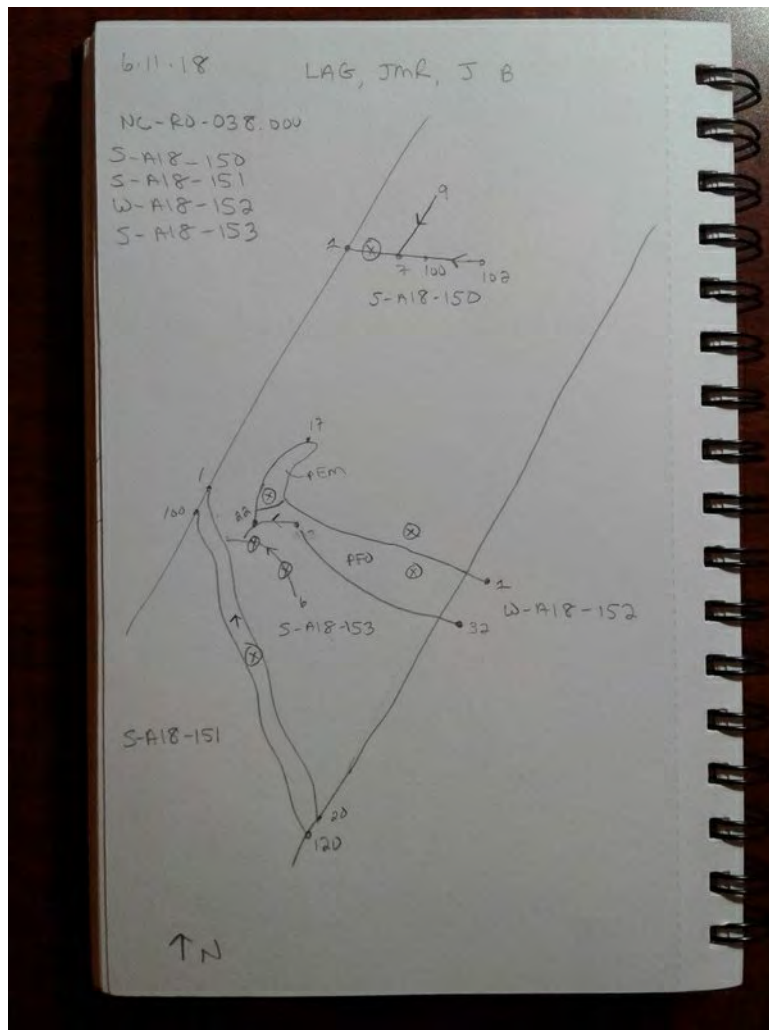 6.11.18
LAG, JMR, J B
NC-RO-038.000
S-A18-150
S-A18-151
W-A18-152
S-A18-153
9
1
7
100
102
S-A18-150
17
PEM
1
100
22
PFO
1
W-A18-152
6
S-A18-153
32
S-A18-151
20
120
↑N